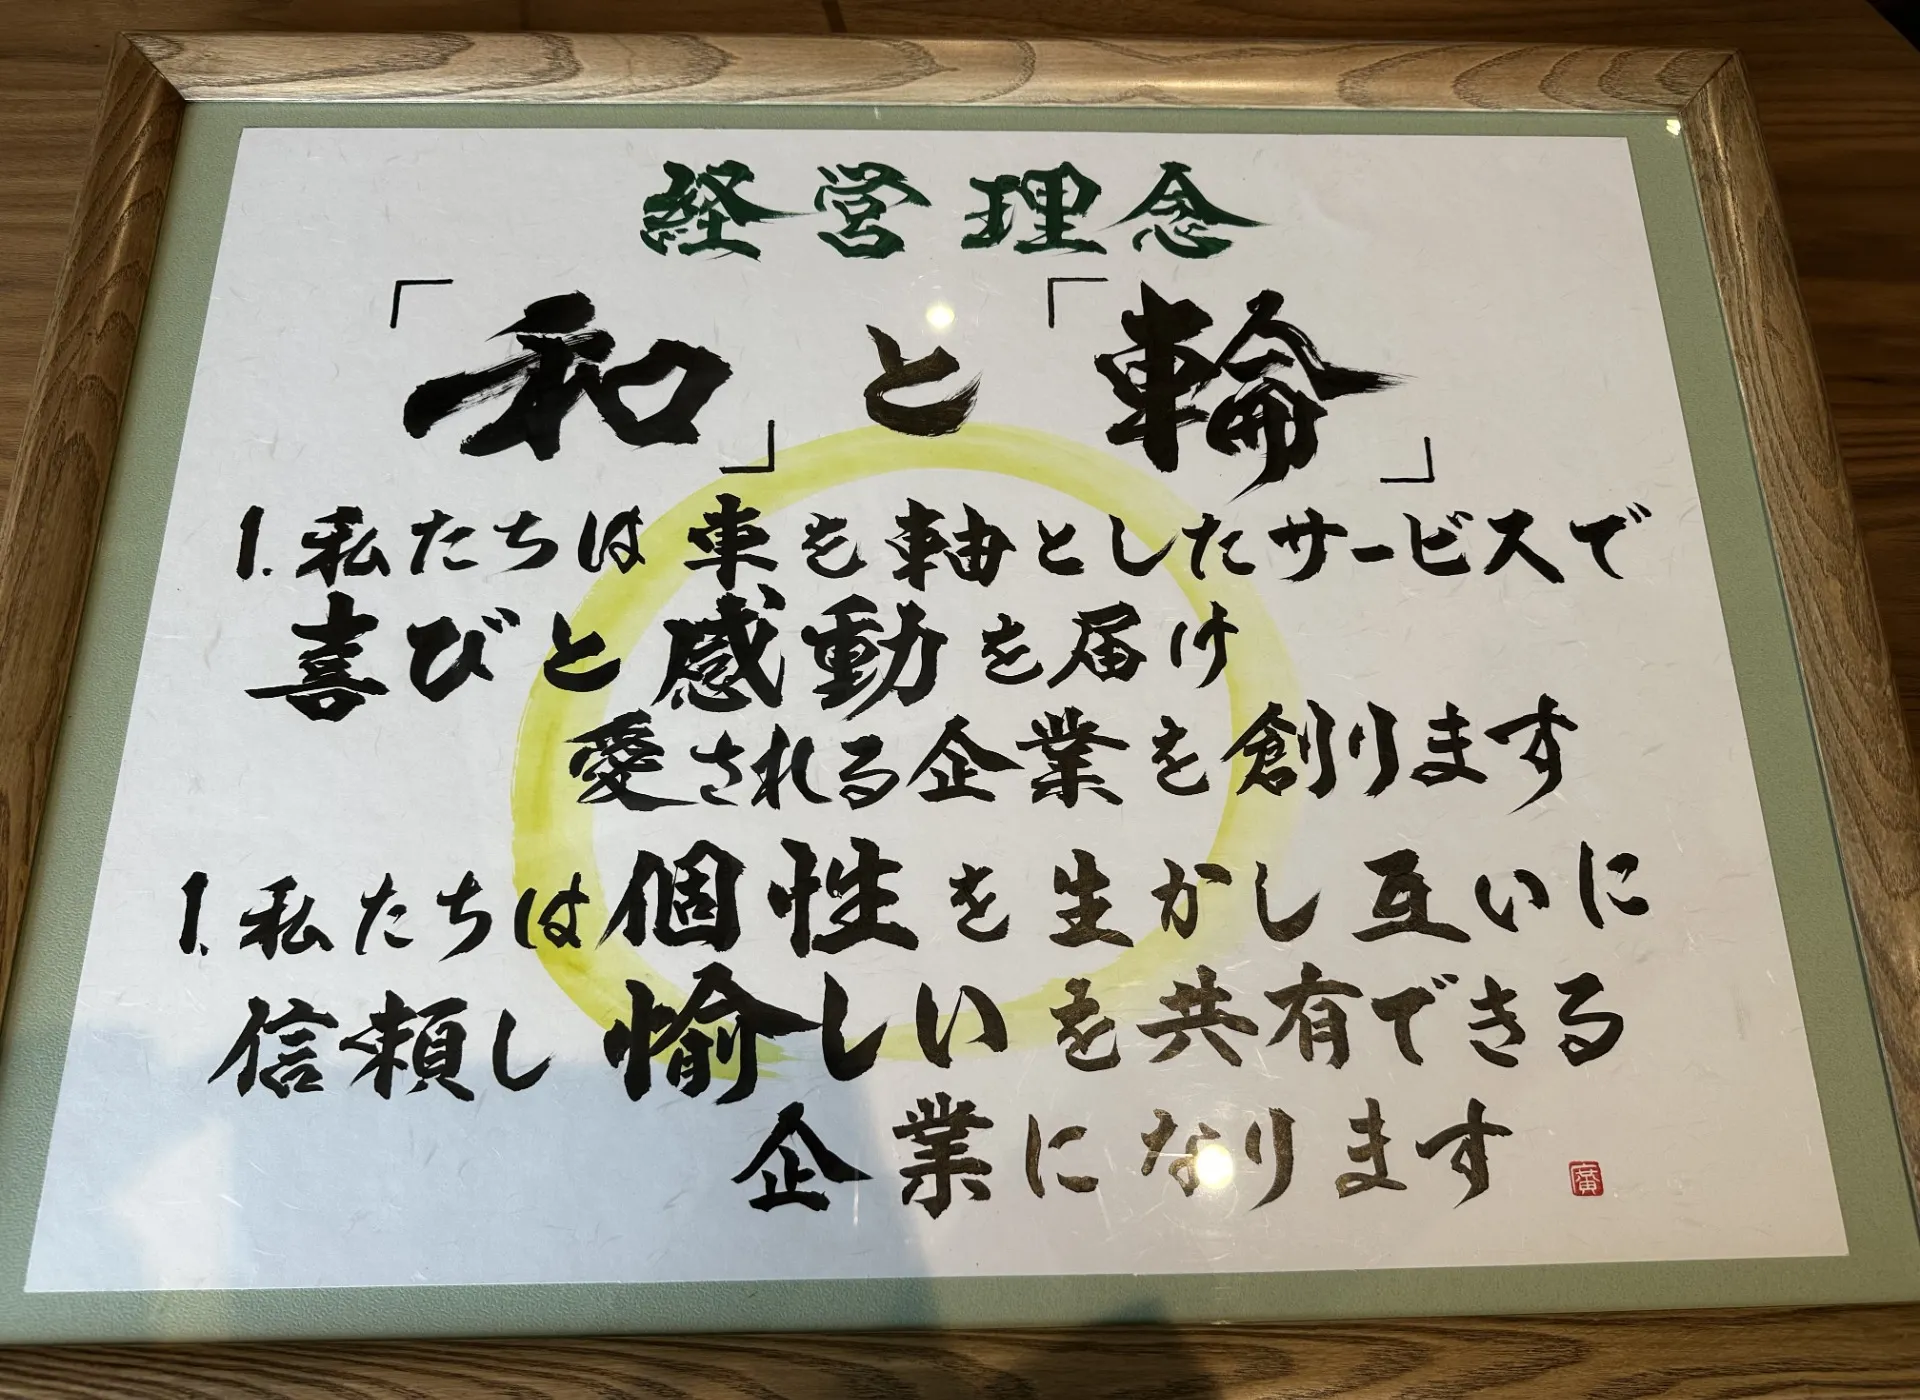 経営理念
「和」と「輪」
1.私たちは車を軸としたサービスで
喜びと感動を届け
愛される企業を創ります
1.私たちは個性を生かし互いに
信頼し愉しいを共有できる
企業になります
廣